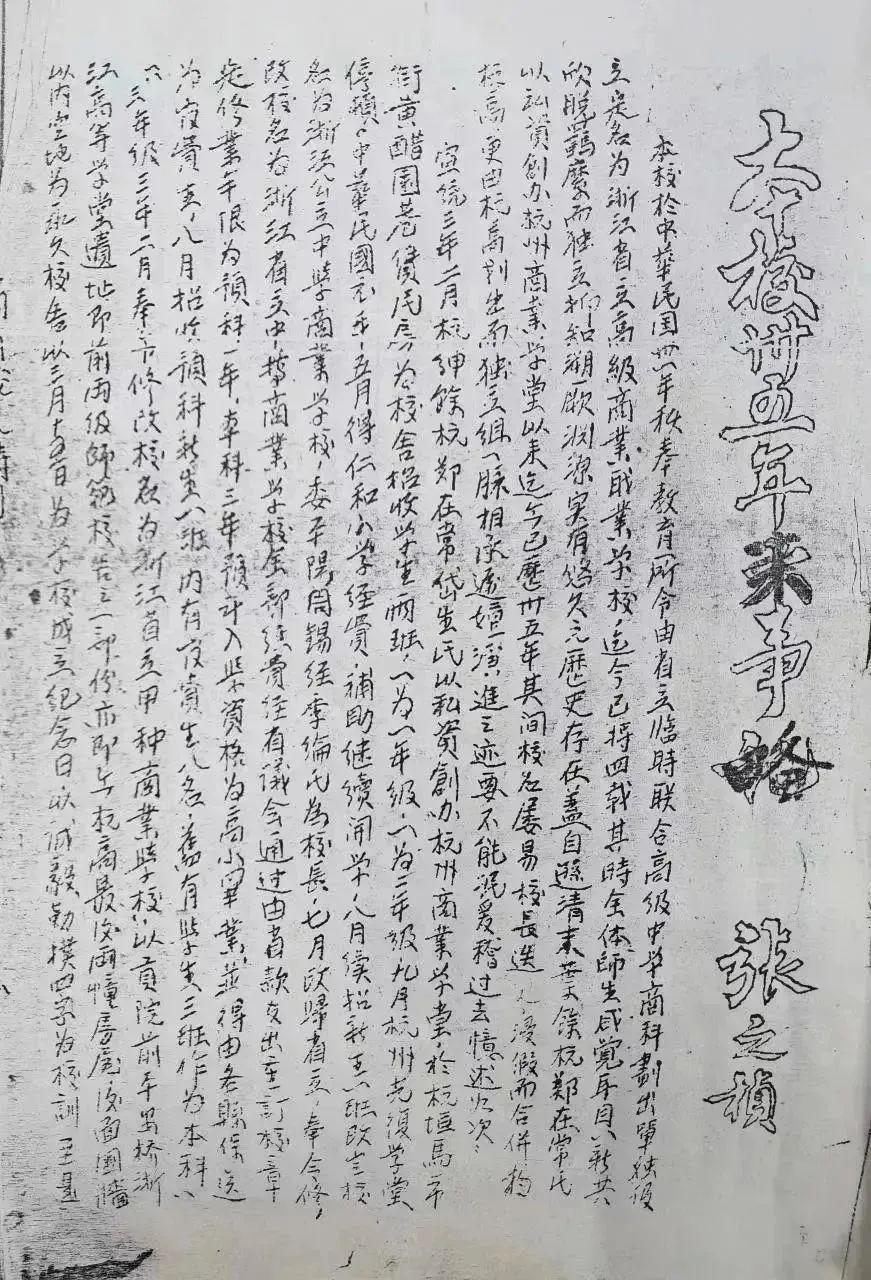 本校卅五年来事略
张之桢
本校於中華民国卅一年秋奉教育所令由省立临時联合高级中学商科劃出單独设
立定名为浙江省立高级商業职業学校，迄今已将四载其時全体師生咸觉耳目一新共
欣脱羁縻而独立抑知溯厥渊源实有悠久之歷史存在蓋自遜清末葉餘杭鄭在常氏
以私资創办杭州商業学堂以来迄今已歷卅五年其间校名屡易校长迭更浸假而合併於
杭高更由杭高划出而独立组一脉相承遞嬗演進之迹要不能泯爰稽过去憶述如次：
宣统三年二月杭紳餘杭鄭在常岱生氏以私资創办杭州商業学堂，於杭垣馬市
街黄醋園巷僦民房为校舍招收学生兩班，一为一年级，一为二年级，九月杭州光復学堂
停頓，中華民國元年，五月得仁和小学经费，補助继续開学，八月续招新生一班改定校
名为浙江公立中等商業学校，委平陽周锡经季纶氏为校長，七月改归省立，奉令修，
改校名为浙江省立中等商業学校全部经费经省議会通过由省款支出重訂校章
定修業年限为預科一年，本科三年預科入学資格为高小畢業並得由各縣保送
为官費生，八月招收預科新生一班内有官費生八名，舊有學生三班作为本科一
二三年级三年二月奉令修改校名为浙江省立甲种商業學校，以貢院前平安橋浙
江高等学堂遺址即前兩级師範校舍之一部份亦即今杭高最後兩幢房屋，後面圍牆
以内空地为永久校舍以三月十五日为学校成立纪念日以诚毅勤樸四字为校訓 至是